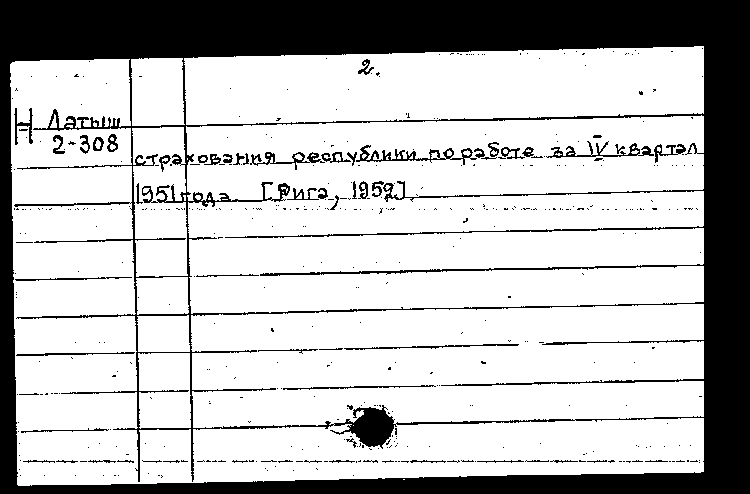 2.
Н Латыш
2-308
страхования республики по работе за IV квартал
1951 года. [Рига, 1952].